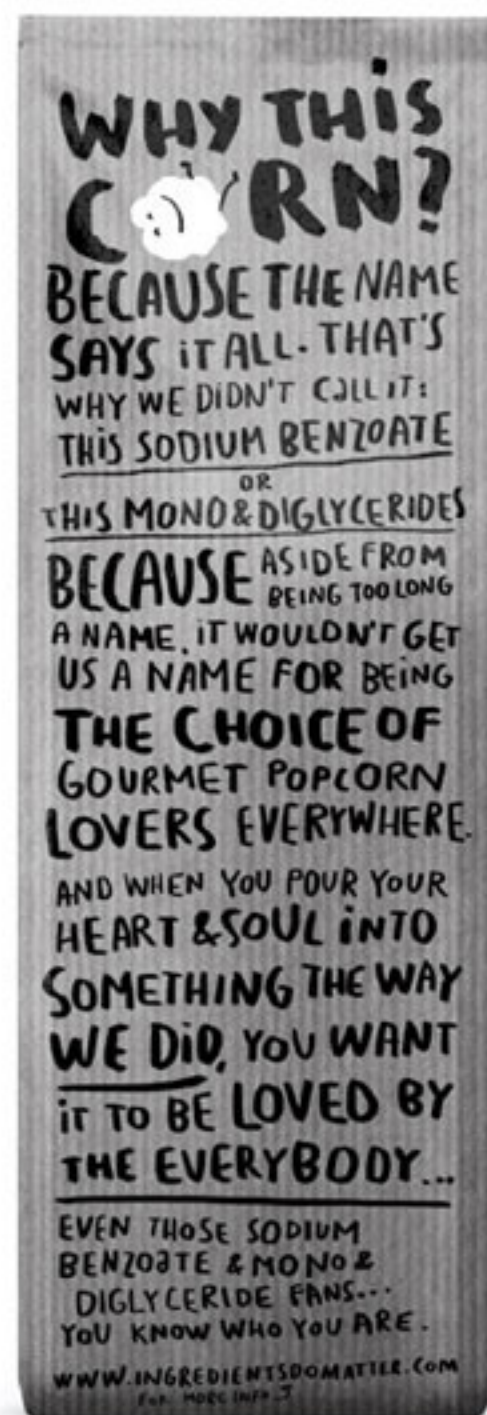 WHY THiS
CORN?
BECAUSE THE NAME
SAYS iT ALL. THAT'S
WHY WE DiDN'T CALL iT:
THiS SODIUM BENZOATE
OR
THIS MONO & DIGLYCERIDES
BECAUSE ASIDE FROM
BEING TOO LONG
A NAME, IT WOULDN'T GET
US A NAME FOR BEiNG
THE CHOICE OF
GOURMET POPCORN
LOVERS EVERYWHERE.
AND WHEN YOU POUR YOUR
HEART & SOUL iNTO
SOMETHING THE WAY
WE DiD, YOU WANT
iT TO BE LOVED BY
THE EVERYBODY...
EVEN THOSE SODIUM
BENZOaTE & MONO &
DIGLYCERIDE FANS...
YOU KNOW WHO YOU ARE.
WWW.INGREDIENTSDOMATTER.COM
FOR MORE INFO